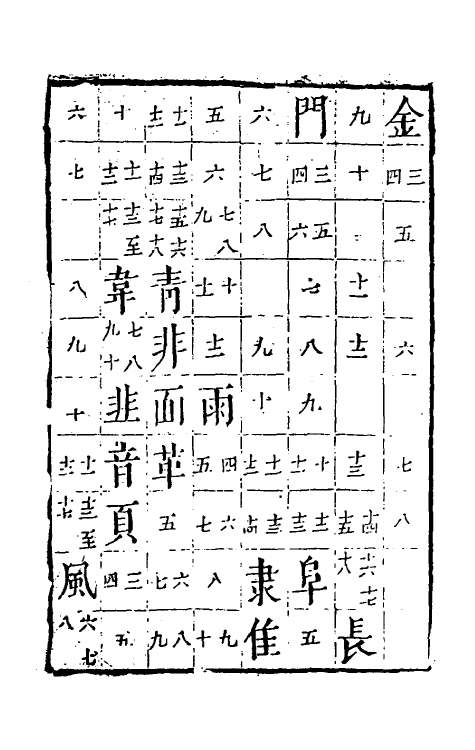 金 三四 五 六 七 八
九 十 十一 十二 十三 十四十五 十六十七十八 長
門 三四 五六 七 八 九 十十一 十二十三 阜 五
六 七 八 九 十 十一十二 十三十四 隶 隹
五 六 七八九 十十一 十二 雨 四五 六七 八 九十
十一十二 十三十四 十五十六十七十八 青 非 面 革 五 六七 八九
十 十一十二 十三至十七 韋 七八九十 韭 音 頁 三四 五
六 七 八 九 十 十一十二 十三至 風 六七八